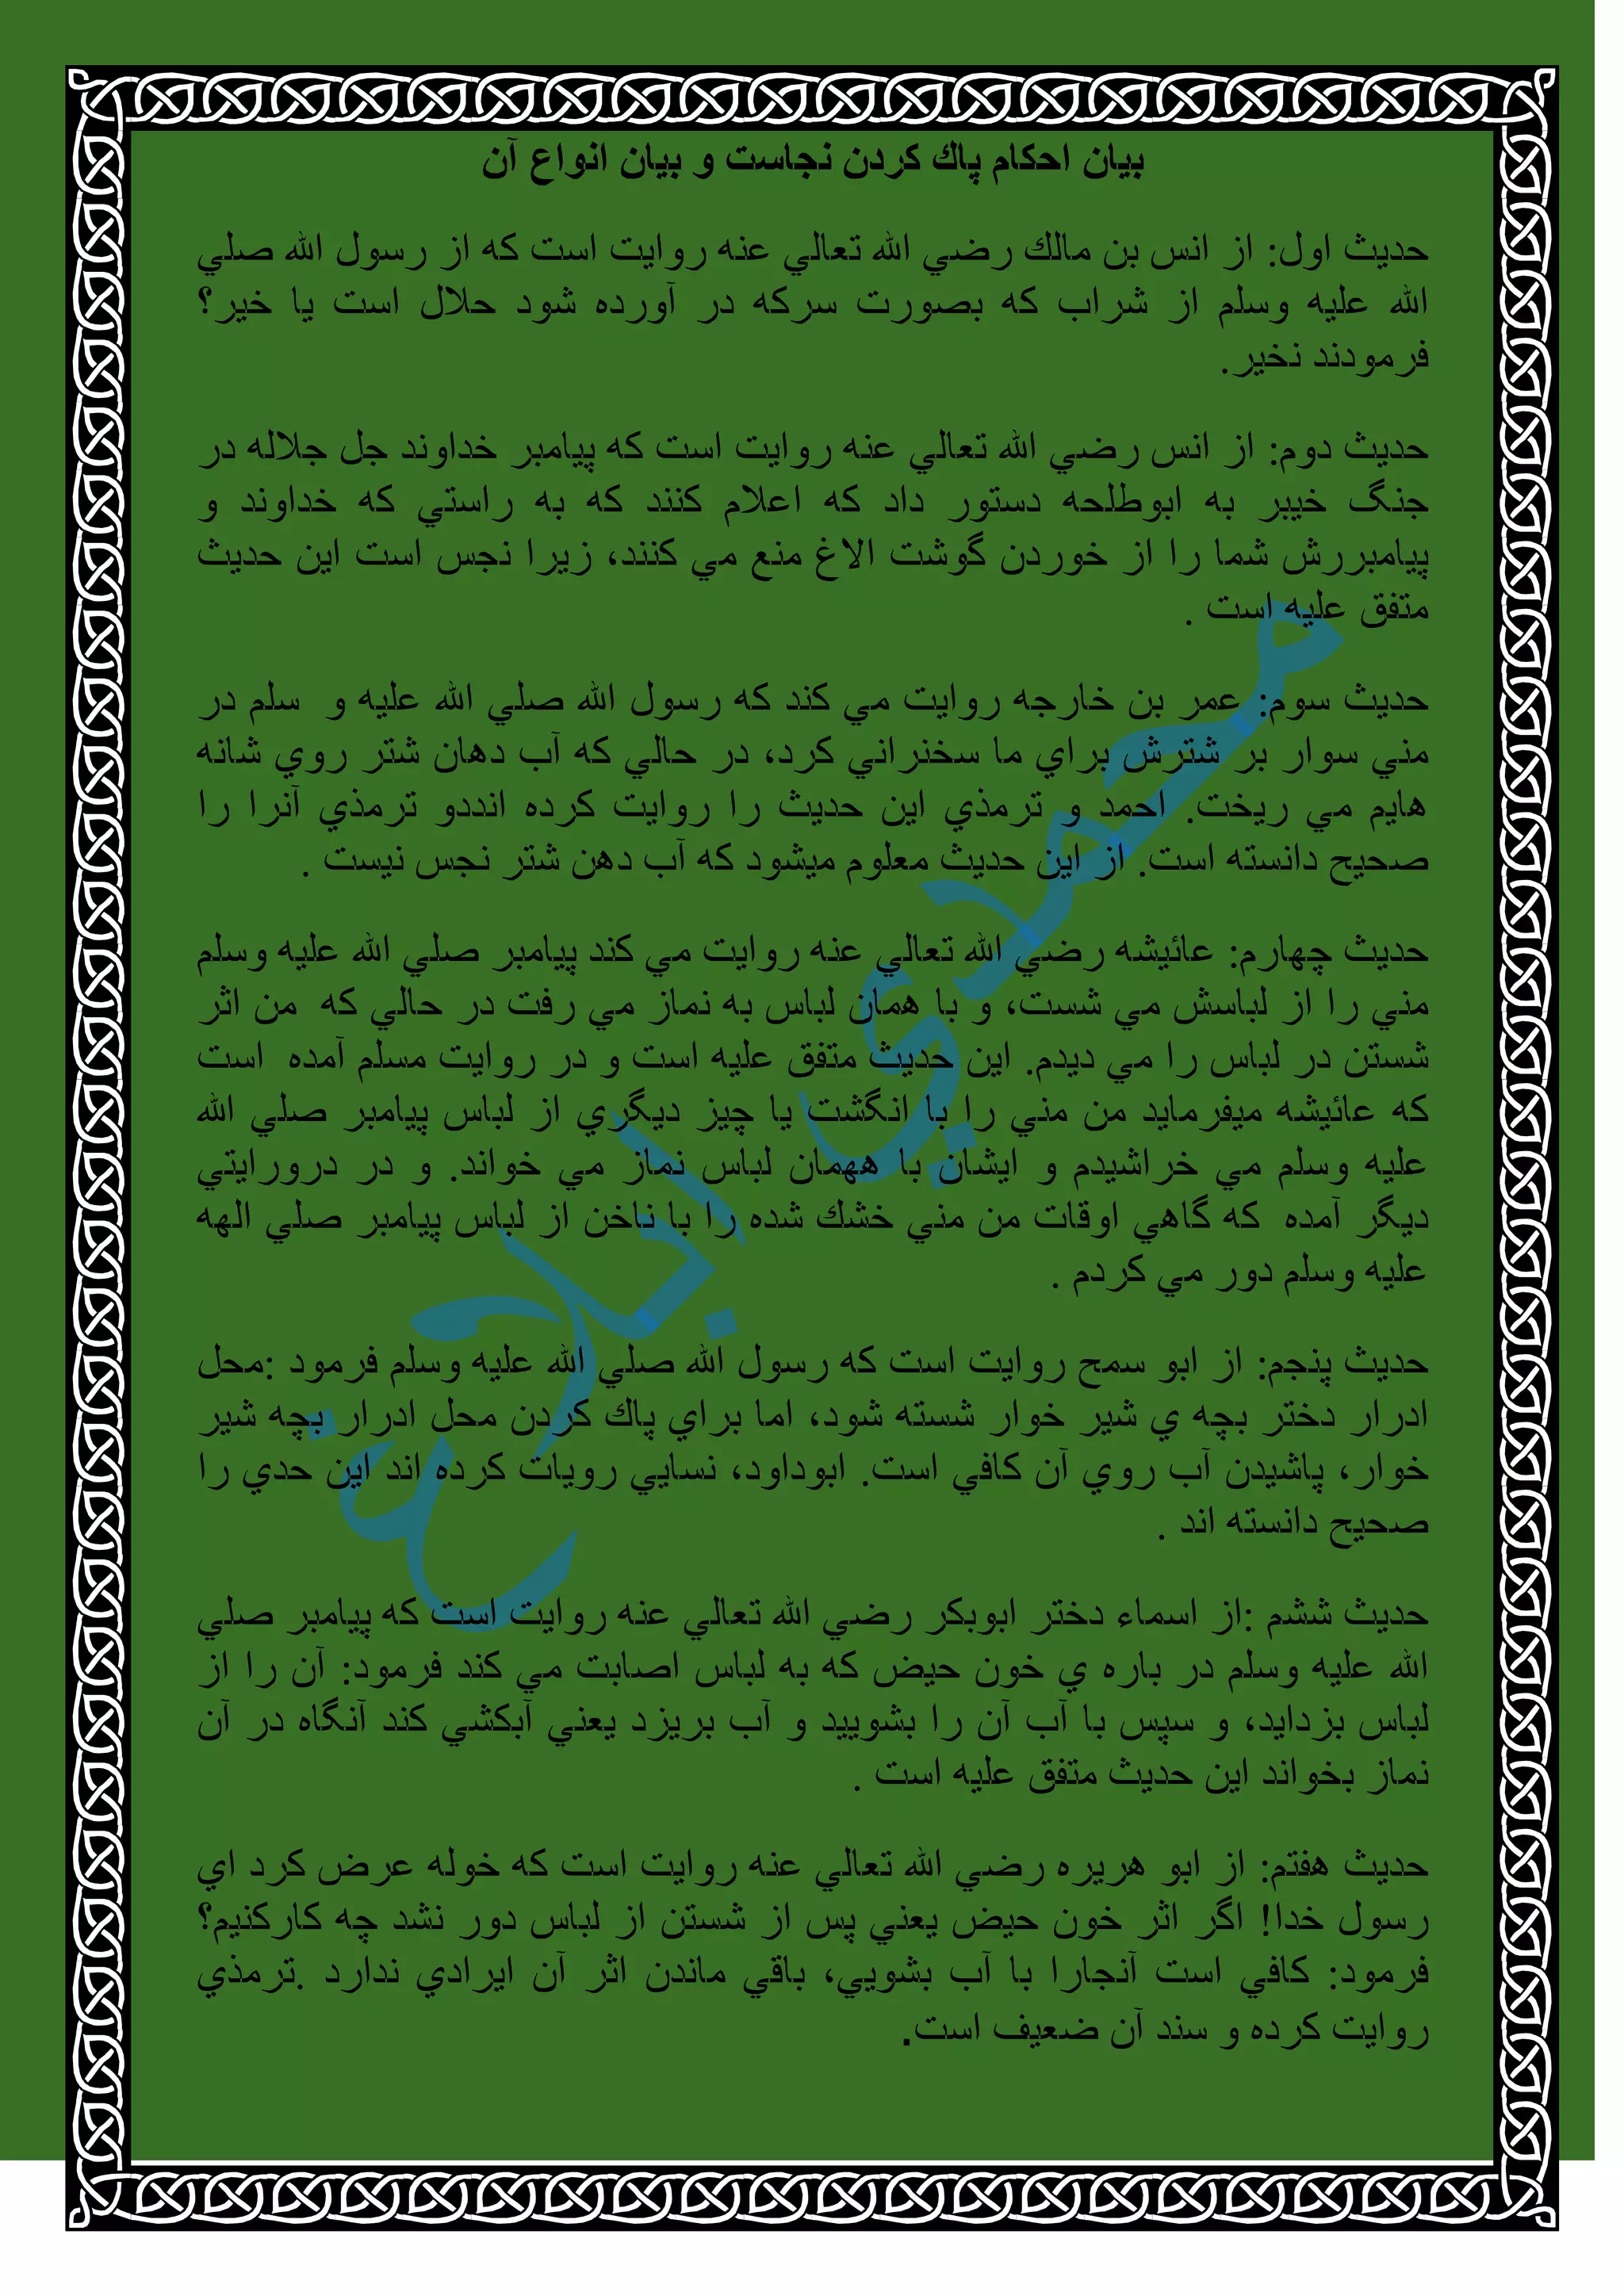 بيان احكام پاك كردن نجاست و بيان انواع آن
حديث اول: از انس بن مالك رضي الله تعالي عنه روايت است كه از رسول الله صلي
الله عليه وسلم از شراب كه بصورت سركه در آورده شود حلال است يا خير؟
فرمودند نخير.
حديث دوم: از انس رضي الله تعالي عنه روايت است كه پيامبر خداوند جل جلاله در
جنگ خيبر به ابوطلحه دستور داد كه اعلام كنند كه به راستي كه خداوند و
پيامبررش شما را از خوردن گوشت الاغ منع مي كنند، زيرا نجس است اين حديث
متفق عليه است .
حديث سوم: عمر بن خارجه روايت مي كند كه رسول الله صلي الله عليه و سلم در
مني سوار بر شترش براي ما سخنراني كرد، در حالي كه آب دهان شتر روي شانه
هايم مي ريخت. احمد و ترمذي اين حديث را روايت كرده انددو ترمذي آنرا را
صحيح دانسته است. از اين حديث معلوم ميشود كه آب دهن شتر نجس نيست .
حديث چهارم: عائيشه رضي الله تعالي عنه روايت مي كند پيامبر صلي الله عليه وسلم
مني را از لباسش مي شست، و با همان لباس به نماز مي رفت در حالي كه من اثر
شستن در لباس را مي ديدم. اين حديث متفق عليه است و در روايت مسلم آمده است
كه عائيشه ميفرمايد من مني را با انگشت يا چيز ديگري از لباس پيامبر صلي الله
عليه وسلم مي خراشيدم و ايشان با ههمان لباس نماز مي خواند. و در درورايتي
ديگر آمده كه گاهي اوقات من مني خشك شده را با ناخن از لباس پيامبر صلي الهه
عليه وسلم دور مي كردم .
حديث پنجم: از ابو سمح روايت است كه رسول الله صلي الله عليه وسلم فرمود :محل
ادرار دختر بچه ي شير خوار شسته شود، اما براي پاك كردن محل ادرار بچه شير
خوار، پاشيدن آب روي آن كافي است. ابوداود، نسايي رويات كرده اند اين حدي را
صحيح دانسته اند .
حديث ششم :از اسماء دختر ابوبكر رضي الله تعالي عنه روايت است كه پيامبر صلي
الله عليه وسلم در باره ي خون حيض كه به لباس اصابت مي كند فرمود: آن را از
لباس بزدايد، و سپس با آب آن را بشوييد و آب بريزد يعني آبكشي كند آنگاه در آن
نماز بخواند اين حديث متفق عليه است .
حديث هفتم: از ابو هريره رضي الله تعالي عنه روايت است كه خوله عرض كرد اي
رسول خدا! اگر اثر خون حيض يعني پس از شستن از لباس دور نشد چه كاركنيم؟
فرمود: كافي است آنجارا با آب بشويي، باقي ماندن اثر آن ايرادي ندارد .ترمذي
روايت كرده و سند آن ضعيف است.
محمدي ابلاغ